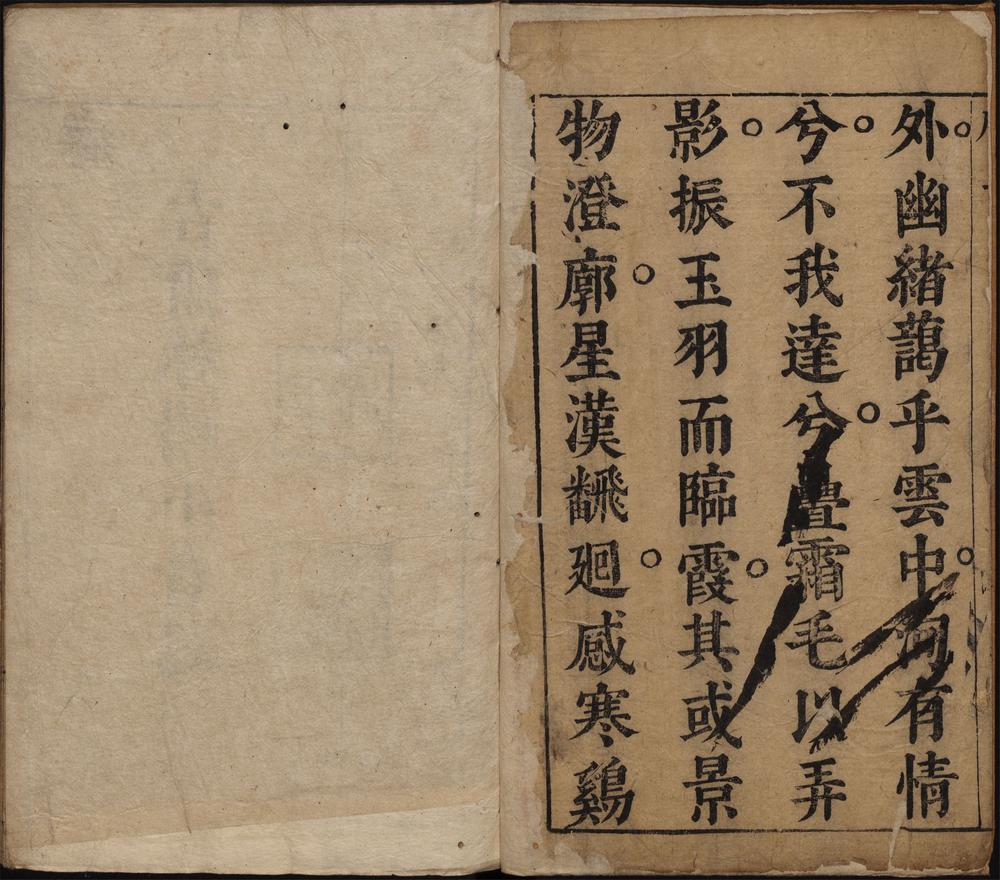 外。幽緒藹乎雲中。何有情
兮。不我達兮。疊霜毛以弄
影。振玉羽而臨霞。其或景
物澄廓。星漢飜廻。感寒鷄